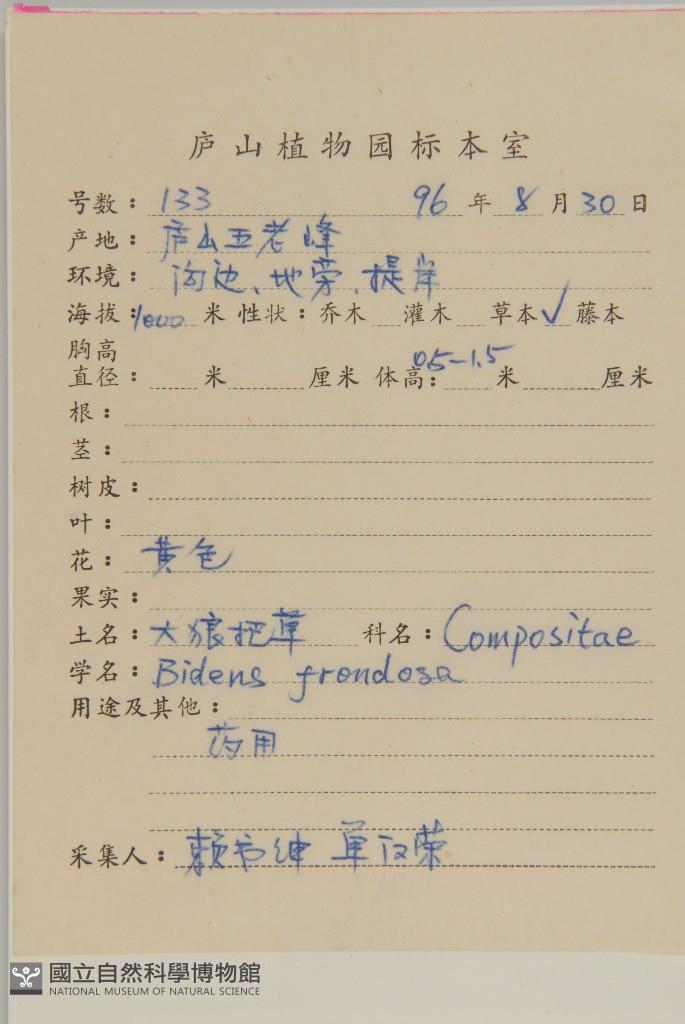 庐山植物园标本室
号数：133 96年8月30日
产地：庐山五老峰
环境：沟边、地旁、提岸
海拔：1000米 性状：乔木 灌木 草本✓ 藤本
胸高
直径： 米 厘米 体高：0.5-1.5 米 厘米
根：
茎：
树皮：
叶：
花：黄色
果实：
土名：大狼把草 科名：Compositae
学名：Bidens frondosa
用途及其他：
药用
采集人：赖书绅 单汉荣
國立自然科學博物館
NATIONAL MUSEUM OF NATURAL SCIENCE